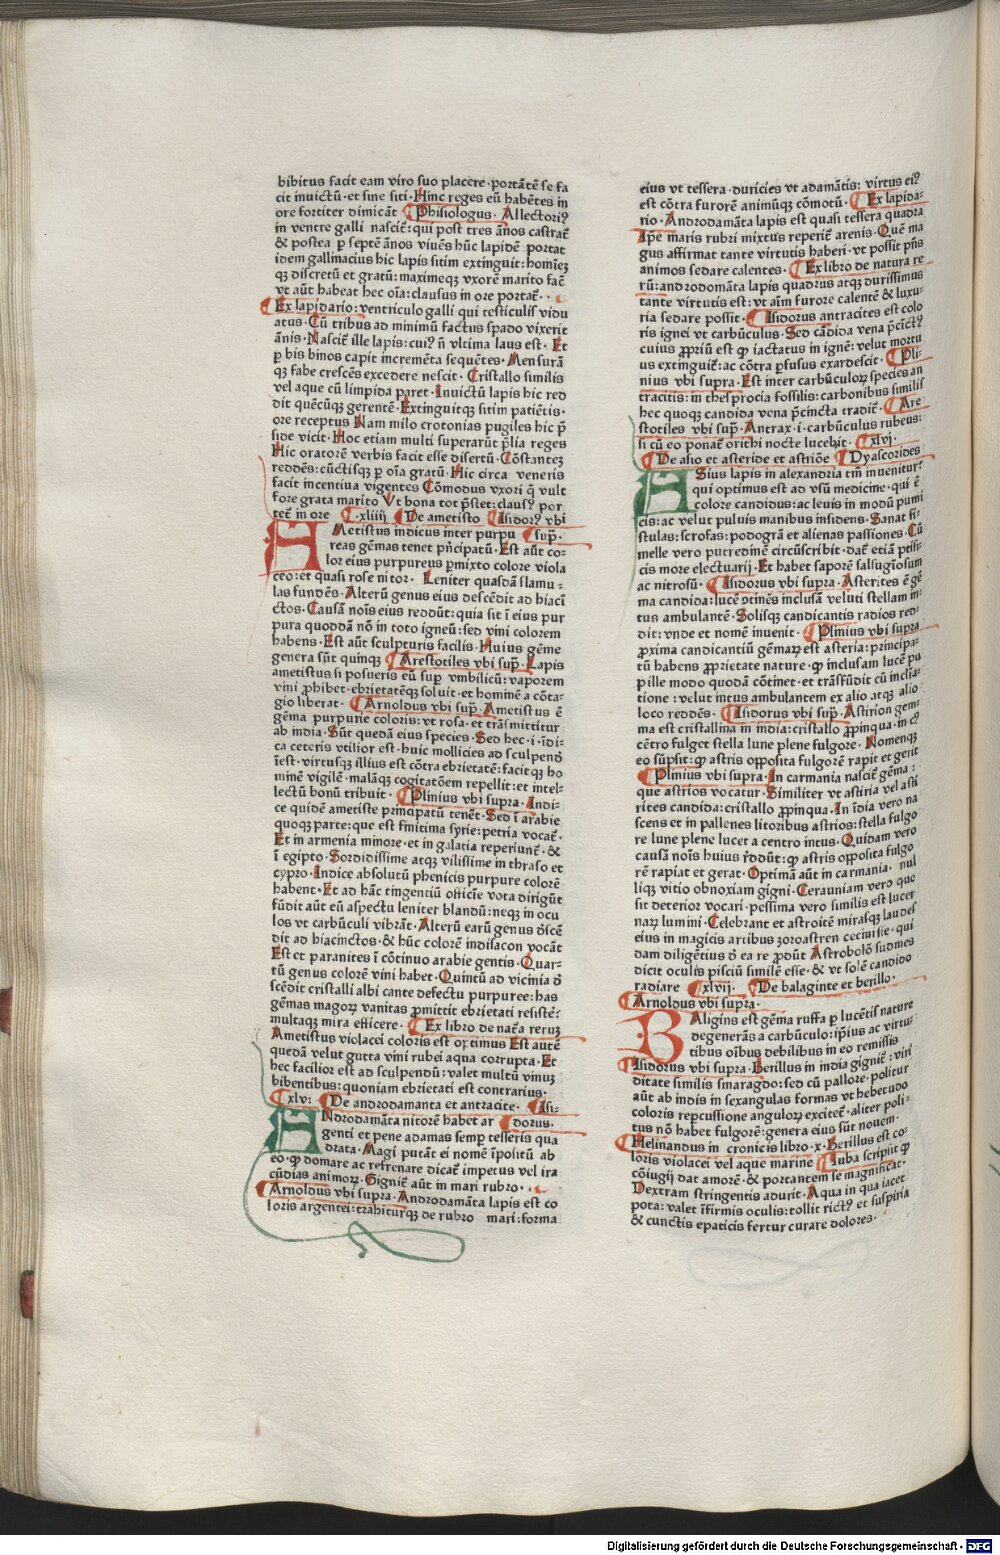 bibitus facit eam viro suo placere·portātē se fa
cit invictū·et sine siti·Hinc reges eū habētes in
ore fortiter dimicāt Phisiologus·Allectoriꝰ
in ventre galli nascit᷑:qui post tres ānos castrat᷑
& postea p septē ānos vivēs hūc lapidē portat
idem gallinacius hic lapis sitim extinguit:homīeꝫ
qꝫ discretū et gratū:maximeqꝫ vxorē marito fac̄
vt aūt habeat hec oīa:clausus in ore portat᷑·
Ex lapidario:ventriculo galli qui testiculis vidu
atus·Cū tribus ad minimū factus spado vixerit
ānis·Nascit᷑ ille lapis:cuiꝰ n̄ vltima laus est·Et
p bis binos capit incremēta sequētes·Mensurā
qꝫ fabe crescēs excedere nescit·Cristallo similis
vel aque cū limpida paret·Invictū lapis hic red
dit quēcūqꝫ gerentē·Extinguitqꝫ sitim patiētis·
ore receptus Nam milo crotonias pugiles hic p̄
side vicit·Hoc etiam multi superarūt p̄lia reges
Hic oratorē verbis facit esse disertū·Cōstanteꝫ
reddēs:cūctisqꝫ p oīa gratū·Hic circa veneris
facit incentiva vigentes Cōmodus vxori q̄ vult
fore grata marito Vt bona tot p̄stet:clausꝰ por
tet᷑ in ore xliiij De ametisto Isidorꝰ vbi
AMetistus indicus inter purpu sup᷑·
reas gēmas tenet p̄ncipatū·Est aūt co-
lor eius purpureus pmixto colore viola
ceo:et quasi rose nitor·Leniter quasdā flamu-
las fundēs·Alterū genus eius descēdit ad hiaci
ctos·Causā noīs eius reddūt:quia sit ī eius pur
pura quoddā nō in toto igneū:sed vini colorem
habens·Est aūt sculpturis facilis·Huius gēme
genera sūt quinqꝫ Arestotiles vbi sup᷑·Lapis
ametistus si posueris eū sup vmbilicū:vaporem
vini ꝓhibet·ebrietatēqꝫ soluit·et hominē a cōta-
gio liberat·Arnoldus vbi sup᷑·Ametistus ē
gēma purpurie coloris:vt rosa·et trāsmittitur
ab india·Sūt quedā eius species·Sed hec·i·īdi-
ca ceteris vtilior est·huic mollicies ad sculpendū
īest·virtusqꝫ illius est cōtra ebrietatē:facitqꝫ ho
minē vigilē·malāqꝫ cogitatōem repellit:et intel-
lectū bonū tribuit·Plinius vbi supra·Indi-
ce quidē ametiste principatū tenēt·Sed ī arabie
quoqꝫ parte:que est finitima syrie:petria vocat᷑·
Et in armenia minore·et in galatia reperiunt᷑·&
ī egipto·Sordidissime atqꝫ vilissime in thraso et
cypro·Indice absolutū phenicis purpure colorē
habent·Et ad hāc tingentiū officīe vota dirigūt
fūdit aūt eū aspectu leniter blandū:neqꝫ in ocu
los vt carbūculi vibrāt·Alterū earū genus d̄scē
dit ad hiacinctos·& hūc colorē indi sacon vocāt
Est et paranites ī cōtinuo arabie gentis·Quar-
tū genus colorē vini habet·Quintū ad vicinia d̄
scēdit cristalli albi cante defectu purpuree:has
gēmas magoꝝ vanitas ꝓmittit ebrietati resistē:
multaqꝫ mira efficere·Ex libro de nat̄a reruꝫ
Ametistus violacei coloris est optimus Est autē
quedā velut gutta vini rubei aqua corrupta·Et
hec facilior est ad sculpendū:valet multū vinuꝫ
bibentibus:quoniam ebrietati est contrarius·
xlv: De androdamanta et antracite·Isi-
ANdrodamāta nitorē habet ar dorus·
genti et pene adamas semp tesseris qua
drata·Magi putāt ei nomē īpositū ab
eo·ꝙ domare ac refrenare dicat᷑ impetus vel ira
cūdias animoꝝ·Signit᷑ aūt in mari rubro·
Arnoldus vbi supra·Androdamāta lapis est co
loris argentei:trahiturqꝫ de rubro mari:forma
eius vt tessera·duricies vt adamātis: virtus eiꝰ
est cōtra furorē animūqꝫ cōmotū·Ex lapida-
rio·Androdamāta lapis est quasi tessera quadra
Ip̄e maris rubri mixtus reperit᷑ arenis·Quē ma
gus affirmat tante virtutis haberi·vt possit p̄ns
animos sedare calentes·Ex libro de natura re
rū:androdomāta lapis quadrus atqꝫ durissimus
tante virtutis est:vt aīm furore calentē & luxu-
ria sedare possit·Isidorus antracites est colo
ris ignei vt carbūculus·Sed cādida vena p̄cīct᷑
cuius ꝓpriū est ꝙ iactatus in ignē:velut mortu
us extinguit᷑:ac cōtra pfusus exardescit·Pli-
nius vbi supra·Est inter carbūculoꝝ species an
tracitis:in thesprocia fossilis:carbonibus similis
hec quoqꝫ candida vena p̄cincta tradit᷑·Are
stotiles vbi sup᷑·Antrax·i·carbūculus rubeus:
si cū eo ponat᷑ orithi nocte lucebit·xlvj·
De asio et asteride et astriōe Dyascorides
ASius lapis in alexandria tm̄ invenitur:
qui optimus est ad vsū medicine·qui ē
colore candidus:ac levis in modū pumi
cis:ac velut puluis manibus insidens·Sanat fi-
stulas:scrofas:podogrā et alienas passiones·Cū
melle vero putredinē circūscribit·dat᷑ etiā ptisi-
cis more electuarij·Et habet saporē salsugiosum
ac nitrosū·Isidorus vbi supra·Asterites ē gē
ma candida:lucē ꝯtinēs inclusā veluti stellam in-
tus ambulantē·Solisqꝫ candicantis radios red-
dit:vnde et nomē invenit·Plinius vbi supra
ꝓxima candicantiū gēmaꝝ est asteria:principa-
tū habens ꝓprietate nature·ꝙ inclusam lucē pu
pille modo quodā cōtinet·et trāsfūdit cū inclīa-
tione:velut intus ambulantem ex alio atqꝫ alio
loco reddēs·Isidorus vbi sup᷑·Astirion gem-
ma est cristallina in india:cristallo ꝓpinqua·in cꝰ
cētro fulget stella lune plene fulgore·Nomenqꝫ
eo sūpsit:ꝙ astris opposita fulgorē rapit et gerit
Plinius vbi supra·In carmania nascit᷑ gēma:
que astrios vocatur·Similiter vt astiria vel asti
rites candida:cristallo ꝓpinqua·In īdia vero na
scens et in pallenes litoribus astrios:stella fulgo
re lune plene lucet a centro intus·Quidam vero
causā noīs huius r̄ddūt:ꝙ astris opposita fulgo
rē rapiat et gerat·Optimā aūt in carmania·nul
liqꝫ vitio obnoxiam gigni·Cerauniam vero que
sit deterior vocari·pessima vero similis est lucer
naꝝ lumini·Celebrant et astroitē mirasqꝫ laudes
eius in magicis artibus zoroastren cecinisse·qui
dam diligētius d̄ ea re ꝓdūt Astrobolō sudines
dicit oculis pisciū similē esse·& vt solē candido
radiare xlvij·De balaginte et berillo·
Arnoldus vbi supra·
BAligins est gēma ruffa p lucētis nature
degenerās a carbūculo:ip̄ius ac virtu-
tibus oībus debilibus in eo remissis
Isidorus vbi supra·Berillus in india gignit᷑:viri
ditate similis smaragdo:sed cū pallore·politur
aūt ab indis in sexangulas formas vt hebetudo
coloris repcussione anguloꝝ excitet᷑·aliter poli-
tus nō habet fulgorē:genera eius sūt novem·
Helinandus in cronicis libro·x·Berillus est co-
loris violacei vel aque marine Iuba scripsit ꝙ
cōiugij dat amorē·& portantem se magnificat·
Dextram stringentis adurit·Aqua in qua iacet
pota:valet īfirmis oculis:tollit rictꝰ et suspiria
& cunctis epaticis fertur curare dolores·
Digitalisierung gefördert durch die Deutsche Forschungsgemeinschaft - DFG